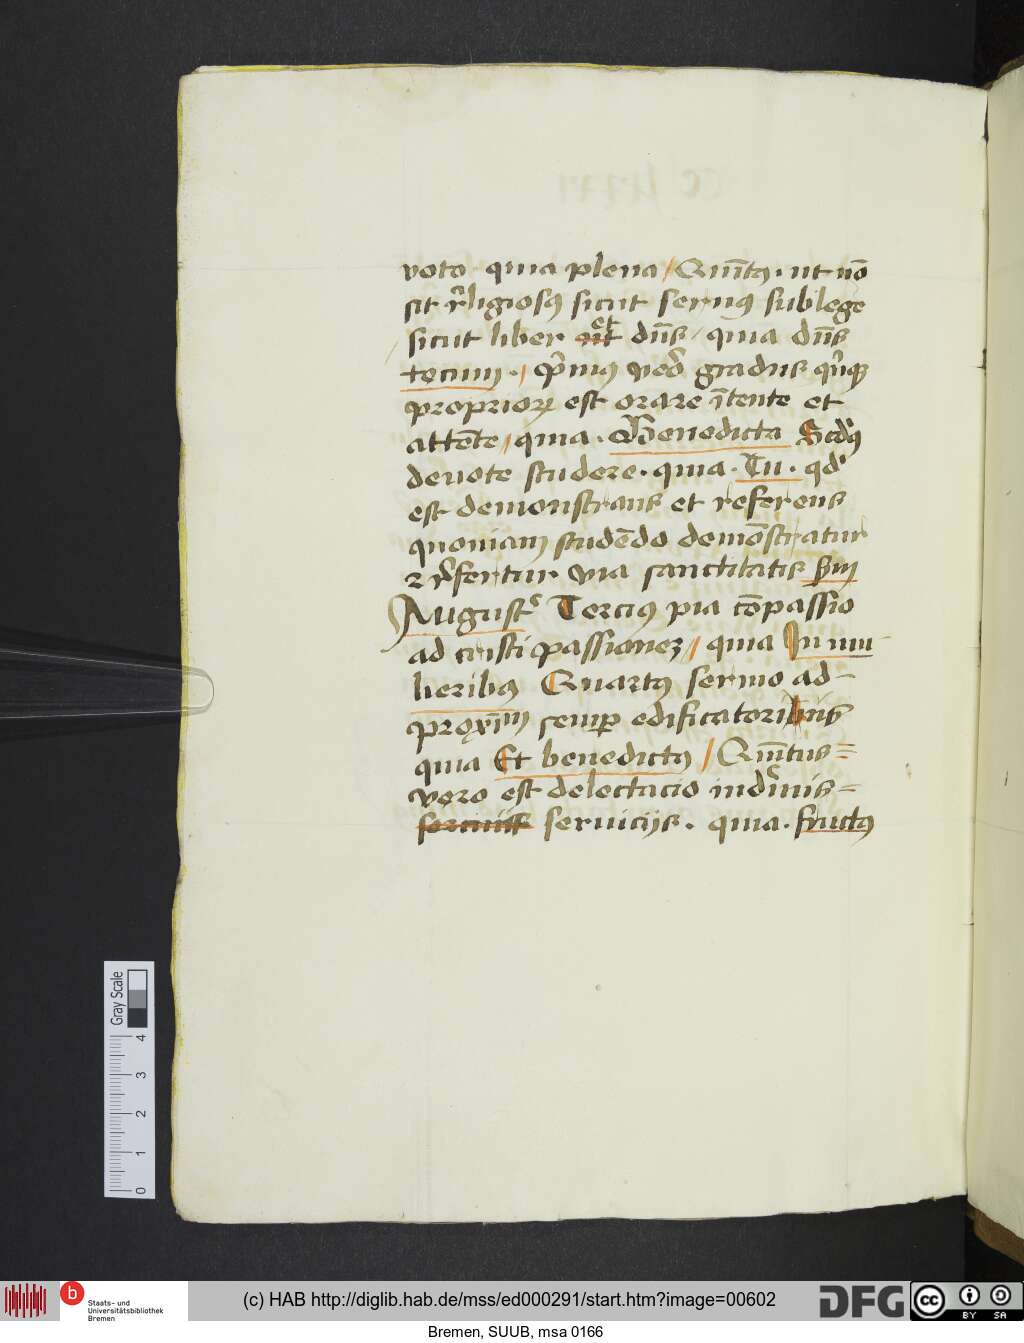 voto quia plena / Qui̅tꝯ · ut no̅
sit r̅ligiosꝯ sicut seruꝯ sub lege
sicut liber et dn̅s / quia dn̅s
tecum · / P̅mus vero̅ gradus
propriorꝝ est orare i̅tente et
atte̅te / quia · Benedicta Scd̅ꝯ
deuote studere · quia · Tu · qd'
est demonstrans et referens
quoniam stude̅do demo̅stratur
⁊ r̅fertur via sanctitatis
August̅ Tercius pia co̅passio
ad cristi passionez / quia In mu
lieribꝯ Quartꝯ sermo ad-
proxi̅m semꝑ edificatori
quia Et benedictꝯ / Qui̅tus =
vero est delectacio in diuinis =
seruicijs · quia · fructꝯ
Gray Scale
4
3
2
1
0
b
Staats- und
Universitätsbibliothek
Bremen
(c) HAB http://diglib.hab.de/mss/ed000291/start.htm?image=00602
DFG
cc BY SA
Bremen, SUUB, msa 0166